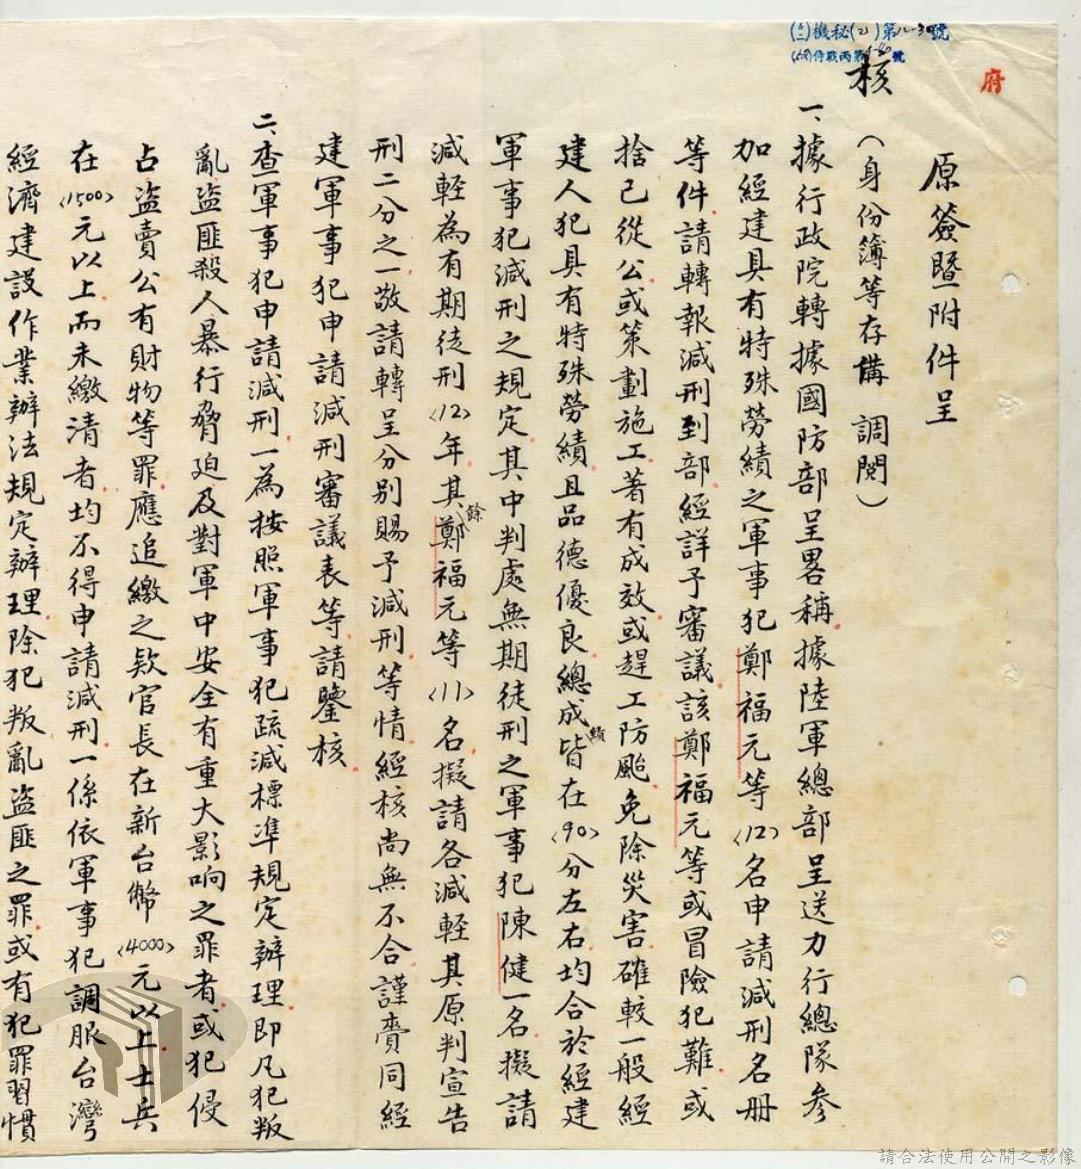 ㈡機秘(21)第12-30號
侍戰丙第 號
府
核
原簽暨附件呈
(身份簿等存備 調閱)
一、據行政院轉據國防部呈畧稱據陸軍總部呈送力行總隊參
加經建具有特殊勞績之軍事犯鄭福元等<12>名申請減刑名册
等件請轉報減刑到部經詳予審議該鄭福元等或冒險犯難或
捨己從公或策劃施工著有成效或趕工防颱免除災害確較一般經
建人犯具有特殊勞績且品德優良總成績皆在<90>分左右均合於經建
軍事犯減刑之規定其中判處無期徒刑之軍事犯陳健一名擬請
減輕為有期徒刑<12>年其餘鄭福元等<11>名擬請各減輕其原判宣告
刑二分之一敬請轉呈分别賜予減刑等情經核尚無不合謹賫同經
建軍事犯申請減刑審議表等請鑒核
二、查軍事犯申請減刑一為按照軍事犯疏減標準規定辦理即凡犯叛
亂盜匪殺人暴行脅迫及對軍中安全有重大影响之罪者或犯侵
占盜賣公有財物等罪應追繳之欵官長在新台幣<4000>元以上士兵
在<1500>元以上而未繳清者均不得申請減刑一係依軍事犯調服台灣
經濟建設作業辦法規定辦理除犯叛亂盜匪之罪或有犯罪習慣
請合法使用公開之影像